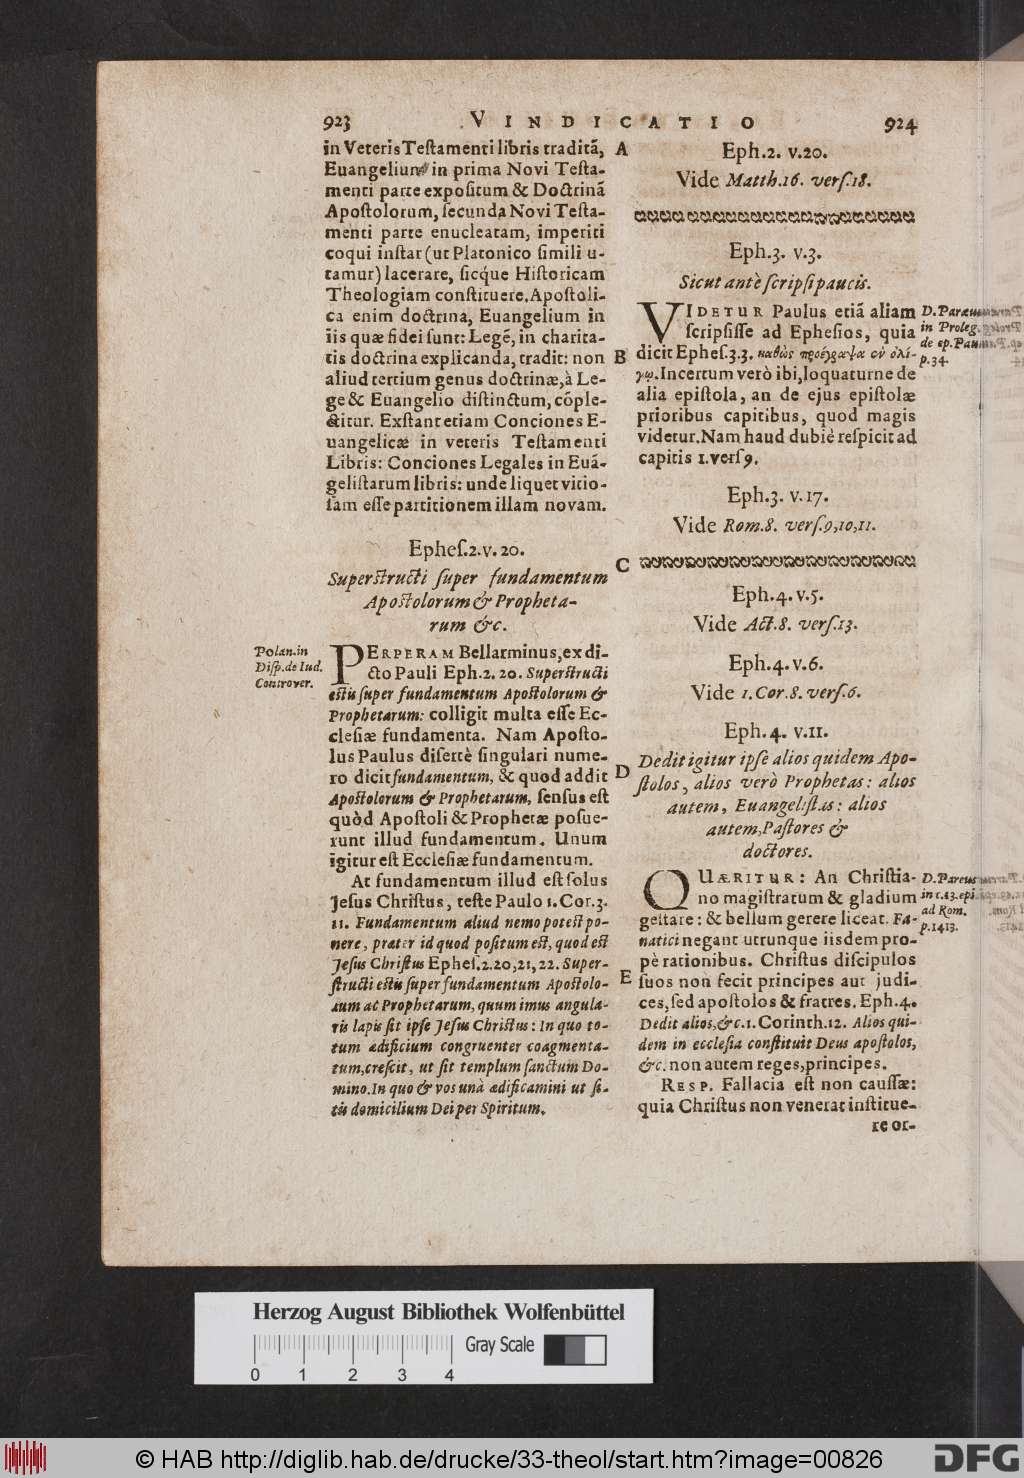 923 VINDICATIO 924
in Veteris Testamenti libris traditã,
Euangelium in prima Novi Testa-
menti parte expositum & Doctrinã
Apostolorum, secunda Novi Testa-
menti parte enucleatam, imperiti
coqui instar (ut Platonico simili u-
tamur) lacerare, sicq́ue Historicam
Theologiam constituere. Apostoli-
ca enim doctrina, Euangelium in
iis quæ fidei sunt: Legẽ, in charita-
tis doctrina explicanda, tradit: non
aliud tertium genus doctrinæ, à Le-
ge & Euangelio distinctum, cõple-
ctitur. Exstant etiam Conciones E-
uangelicæ in veteris Testamenti
Libris: Conciones Legales in Euã-
gelistarum libris: unde liquet vitio-
sam esse partitionem illam novam.
Ephes.2.v.20.
Superstructi super fundamentum
Apostolorum & Propheta-
rum &c.
Polan.in
Disp.de Iud.
Controver.
PERPERAM Bellarminus, ex di-
cto Pauli Eph.2.20. Superstructi
estis super fundamentum Apostolorum &
Prophetarum: colligit multa esse Ec-
clesiæ fundamenta. Nam Aposto-
lus Paulus disertè singulari nume-
ro dicit fundamentum, & quod addit
Apostolorum & Prophetarum, sensus est
quòd Apostoli & Prophetæ posue-
runt illud fundamentum. Unum
igitur est Ecclesiæ fundamentum.
At fundamentum illud est solus
Jesus Christus, teste Paulo 1.Cor.3.
11. Fundamentum aliud nemo potest po-
nere, præter id quod positum est, quod est
Jesus Christus Ephes.2.20,21,22. Super-
structi estis super fundamentum Apostolo-
rum ac Prophetarum, quum imus angula-
ris lapis sit ipse Jesus Christus: In quo to-
tum ædificium congruenter coagmenta-
tum, crescit, ut sit templum sanctum Do-
mino. In quo & vos unà ædificamini ut si-
tis domicilium Dei per Spiritum.
A
B
C
D
E
Eph.2. v.20.
Vide Matth.16. vers.18.
Eph.3. v.3.
Sicut antè scripsi paucis.
VIDETUR Paulus etiã aliam
scripsisse ad Ephesios, quia
dicit Ephes.3.3. καθὼς προέγραψα ἐν ὀλί-
γῳ. Incertum verò ibi, loquaturne de
alia epistola, an de ejus epistolæ
prioribus capitibus, quod magis
videtur. Nam haud dubiè respicit ad
capitis 1.vers 9.
D.Paræus
in Proleg.
de ep.Pauli
p.34.
Eph.3. v.17.
Vide Rom.8. vers.9,10,11.
Eph.4.v.5.
Vide Act.8. vers.13.
Eph.4.v.6.
Vide 1.Cor.8. vers.6.
Eph.4. v.11.
Dedit igitur ipse alios quidem Apo-
stolos, alios verò Prophetas: alios
autem, Euangelistas: alios
autem, Pastores &
doctores.
QUÆRITUR: An Christia-
no magistratum & gladium
gestare: & bellum gerere liceat. Fa-
natici negant utrunque iisdem pro-
pè rationibus. Christus discipulos
suos non fecit principes aut judi-
ces, sed apostolos & fratres. Eph.4.
Dedit alios, &c. 1. Corinth.12. Alios qui-
dem in ecclesia constituit Deus apostolos,
&c. non autem reges, principes.
RESP. Fallacia est non caussæ:
quia Christus non venerat institue-
re or-
D.Pareus
in c.13.epi
ad Rom.
p.1413.
Herzog August Bibliothek Wolfenbüttel
Gray Scale
0 1 2 3 4
© HAB http://diglib.hab.de/drucke/33-theol/start.htm?image=00826
DFG